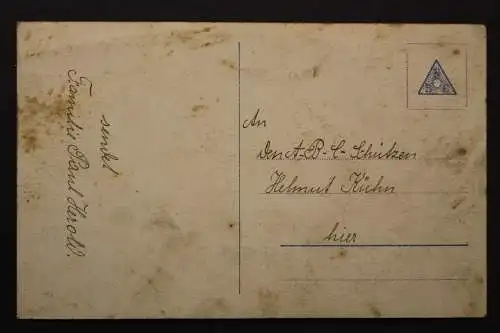 sendet
Familie Paul Herold.
An
den A-B-C-Schützen
Helmut Kühn
hier